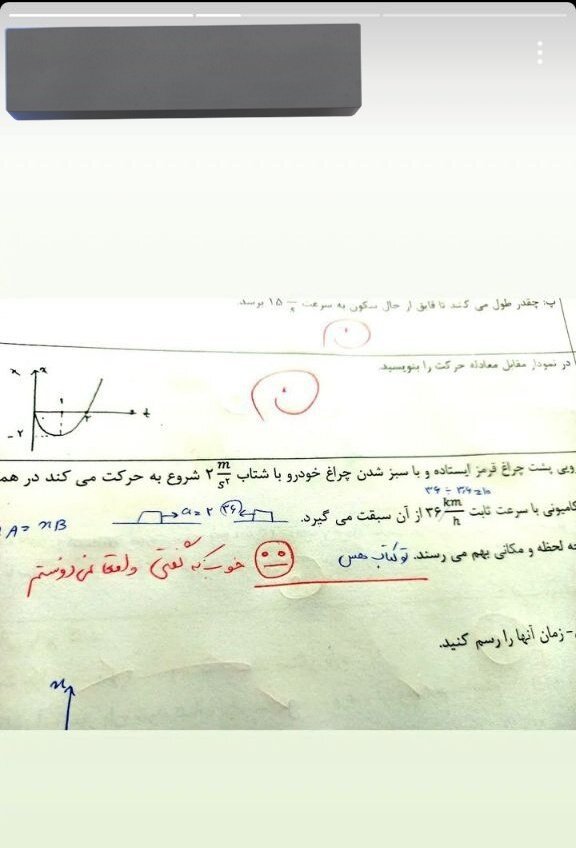 ب: چقدر طول می کشد تا قایق از حال سکون به سرعت ۱۵ m/s برسد.
۰
در نمودار مقابل معادله حرکت را بنویسید.
۰
x
t
۱
۲
-۲
رویی پشت چراغ قرمز ایستاده و با سبز شدن چراغ خودرو با شتاب ۲ m/s² شروع به حرکت می کند در هم
۳۶ ÷ ۳٫۶ = ۱۰
کامیونی با سرعت ثابت ۳۶ km/h از آن سبقت می گیرد.
a = ۲
۳۶
A = xB
چه لحظه و مکانی بهم می رسند. تو کتاب هس
خوب که گفتی واقعا نمی دونستم
- زمان آنها را رسم کنید.
x